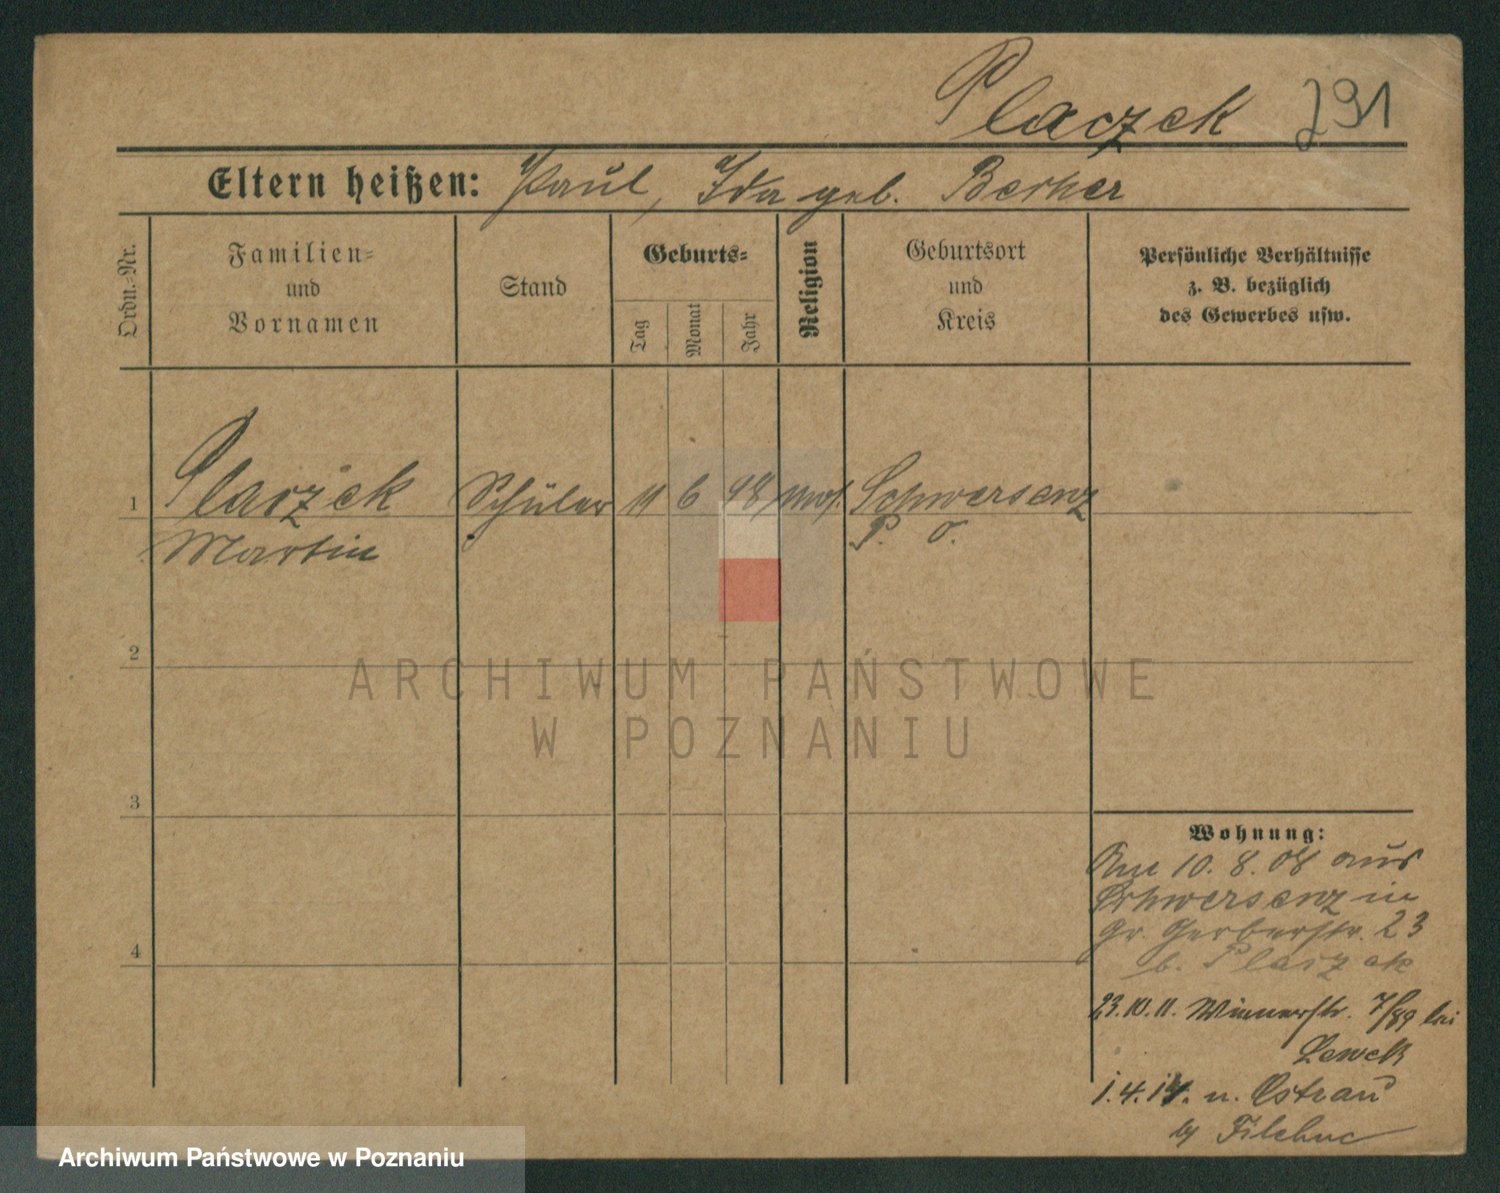 Placzek 291
Eltern heißen: Paul, Ida geb. Berker
Ordn.-Nr.
Familien-
und
Vornamen
Stand
Geburts-
Tag
Monat
Jahr
Religion
Geburtsort
und
Kreis
Persönliche Verhältnisse
z. B. bezüglich
des Gewerbes usw.
1 Placzek Schüler 11 6 98 mos. Schwersenz
Martin P. O.
2
3
4
ARCHIWUM PAŃSTWOWE
W POZNANIU
Wohnung:
Am 10. 8. 08 aus
Schwersenz in
Gr. Gerberstr. 23
b. Placzek
23.10.11. Wienerstr. 7/89 bei
Lewek
1.4.14. n. Ostrau
by Filehne
Archiwum Państwowe w Poznaniu